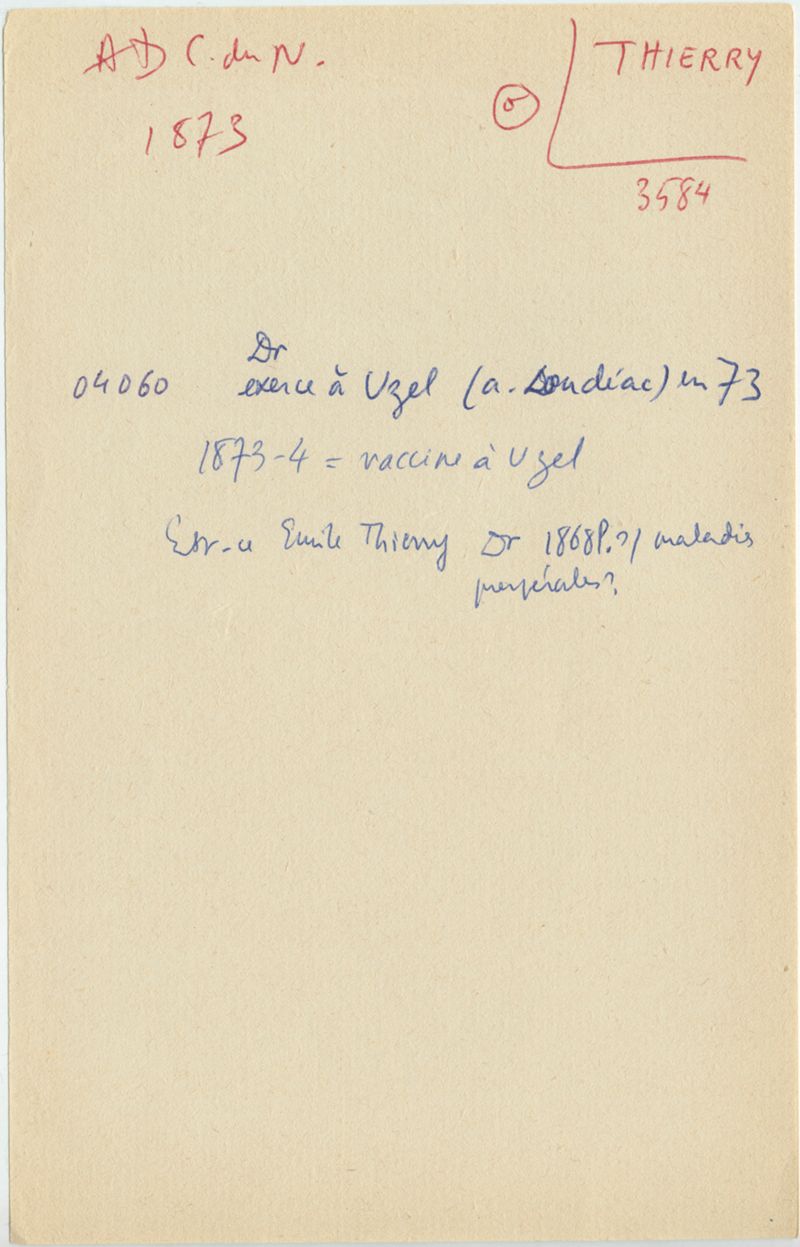 AD C. du N.
THIERRY
1873
3584
Dr
04060 exerce à Uzel (a. Loudéac) en 73
1873-4 = vaccine à Uzel
Est-ce Emile Thierry Dr 1868P.?/ maladies
puerpérales?